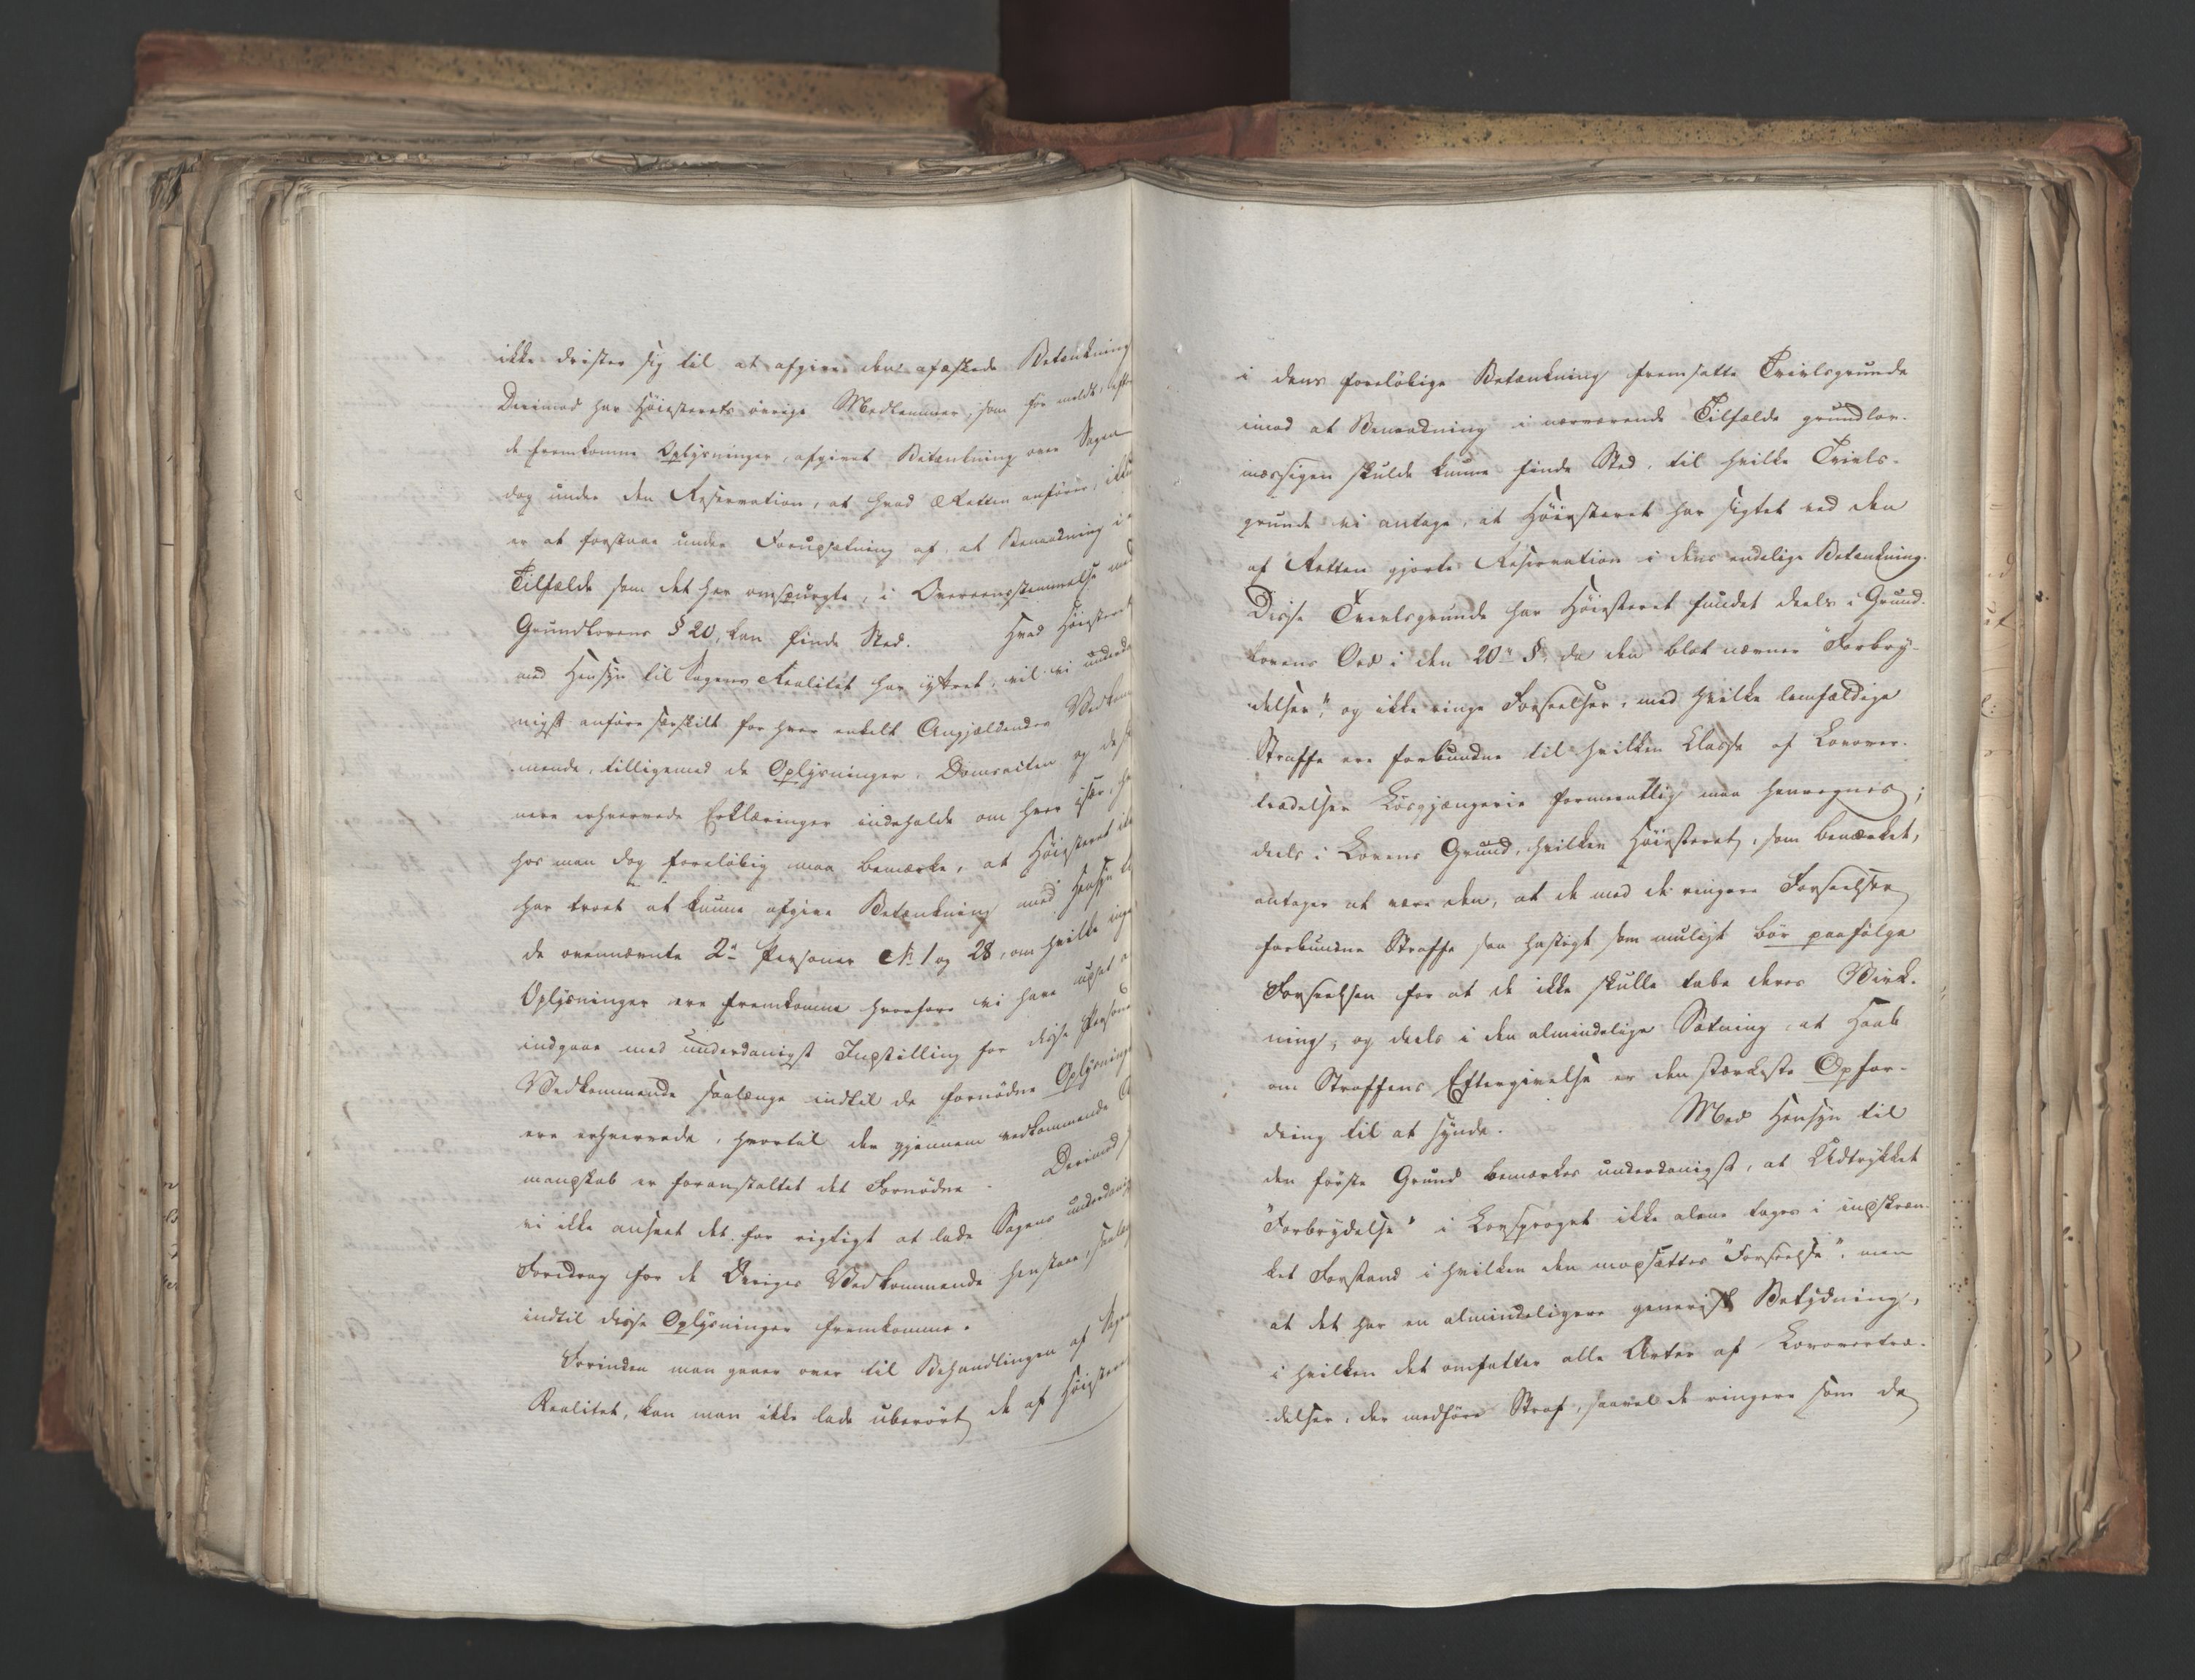 ikke drister sig til at afgive den afæskede Betænkning
Derimod har Høiesterets øvrige Medlemmer, som før meldt, efter
de fremkomne Oplysninger, afgivet Betænkning over Sagen
dog under den Reservation, at hvad Retten anfører, ikke
er at forstaae under Forudsætning af, at Benaadning i
Tilfælde som det her omspurgte, i Overeensstemmelse med
Grundlovens § 20, kan finde Sted. Hvad Høiesteret
med Hensyn til Sagens Realitet har yttret, vil vi underda
nigst anføre særskilt for hver enkelt Angjældendes Vedkom
mende, tilligemed de Oplysninger, Domsacten og de se
nere erhvervede Erklæringer indeholde om hver især, hv
hos man dog foreløbig maa bemærke, at Høiesteret ikke
har troet at kunne afgive Betænkning med Hensyn til
de ovennævnte 2de Personer No 1 og 28, om hvilke inge
Oplysninger ere fremkomne hvorfore vi have udsat at
indgaae med underdanigst Indstilling for disse Persone
Vedkommende saalænge indtil de fornødne Oplysninge
ere erhvervede, hvortil der gjennem vedkommende A
mandskab er foranstaltet det Fornødne. Derimod
vi ikke anseet det for rigtigt at lade Sagens underdanig
Foredrag for de Øvriges Vedkommende henstaae, saalæ
indtil disse Oplysninger fremkomme.
Forinden man gaaer over til Behandlingen af Sage
Realitet, kan man ikke lade uberørt de af Høiestere
i dens foreløbige Betænkning fremsatte Tvivlsgrunde
imod at Benaadning i nærværende Tilfælde grundlov-
mæssigen skulde kunne finde Sted, til hvilke Tvivls-
grunde vi antage, at Høiesteret har sigtet ved den
af Retten gjorte Reservation i dens endelige Betænkning.
Disse Tvivlsgrunde har Høiesteret fundet deels i Grund-
lovens Ord i den 20de §, da den blot nævner "Forbry-
delser", og ikke ringe Forseelser, med hvilke lemfældige
Straffe ere forbundne til hvilken Classe af Lovover-
trædelser Løsgjængerie formeentlig maa henregnes;
deels i Lovens Grund, hvilken Høiesteret, som bemærket,
antager at være den, at de med de ringere Forseelser
forbundne Straffe saa hastigt som muligt bør paafølge
Forseelsen for at de ikke skulle tabe deres Virk-
ning, og deels i den almindelige Sætning, at Haab
om Straffens Eftergivelse er den stærkeste Opfor-
dring til at synde. Med Hensyn til
den første Grund bemærkes underdanigst, at Udtrykket
"Forbrydelse" i Lovsproget ikke alene tages i indskræn-
ket Forstand i hvilken den modsættes "Forseelse", men
at det har en almindeligere generisk Betydning,
i hvilken det omfatter alle Arter af Lovovertræ-
delser, der medføre Straf, saavel de ringere som de